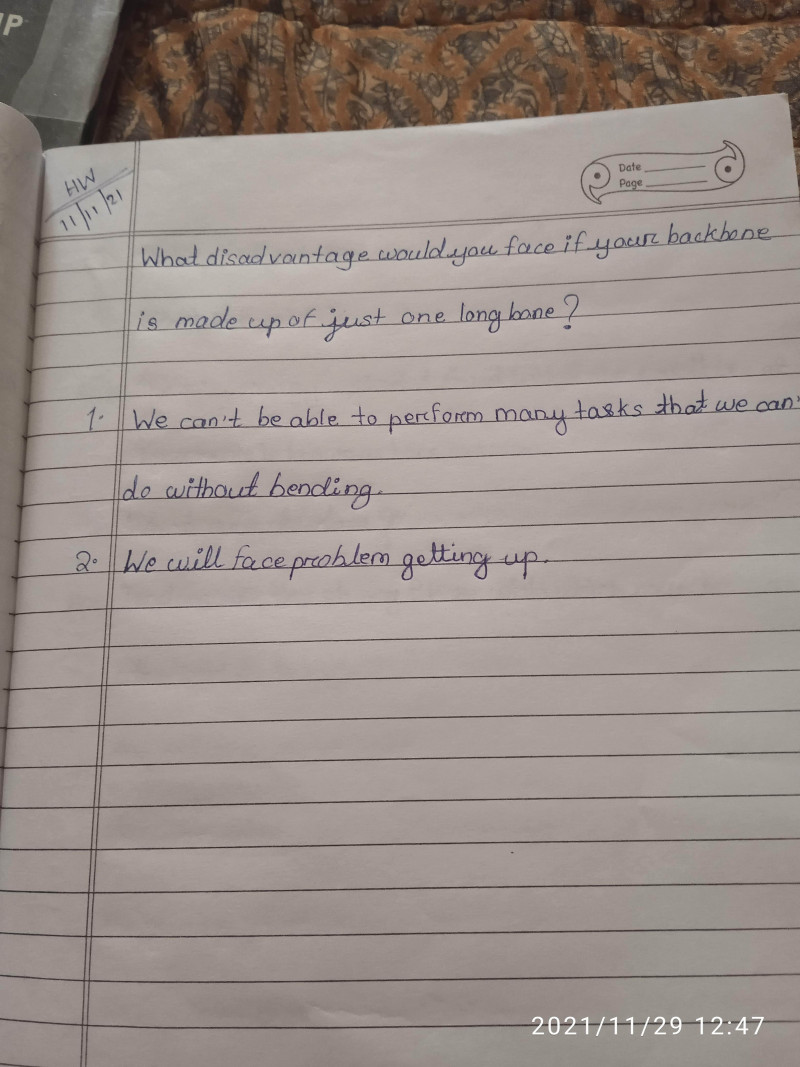 IP
HW
11/11/21
Date
Page
What disadvantage would you face if your backbone
is made up of just one long bone?
1. We can't be able to perform many tasks that we can'
do without bending.
2. We will face problem getting up.
2021/11/29 12:47